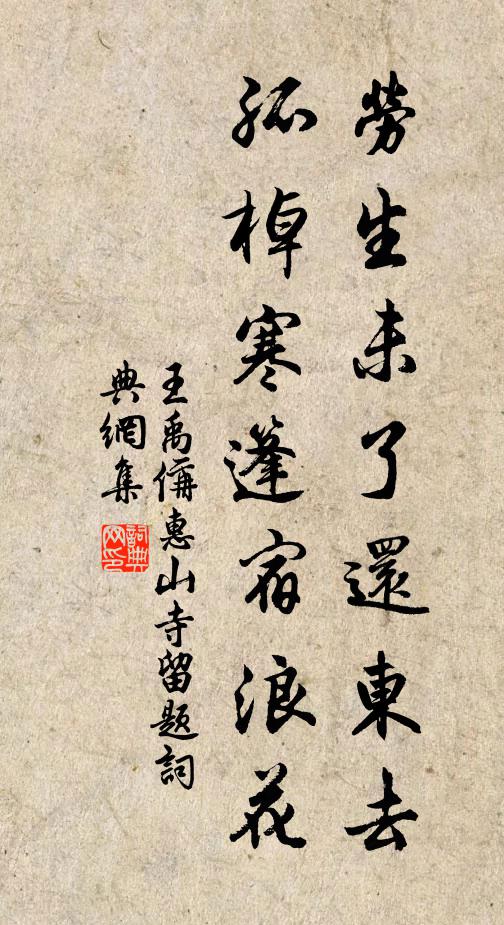 勞生未了還東去
孤棹寒篷宿浪花
王禹偁惠山寺留题詞
典網集
詞典
网印